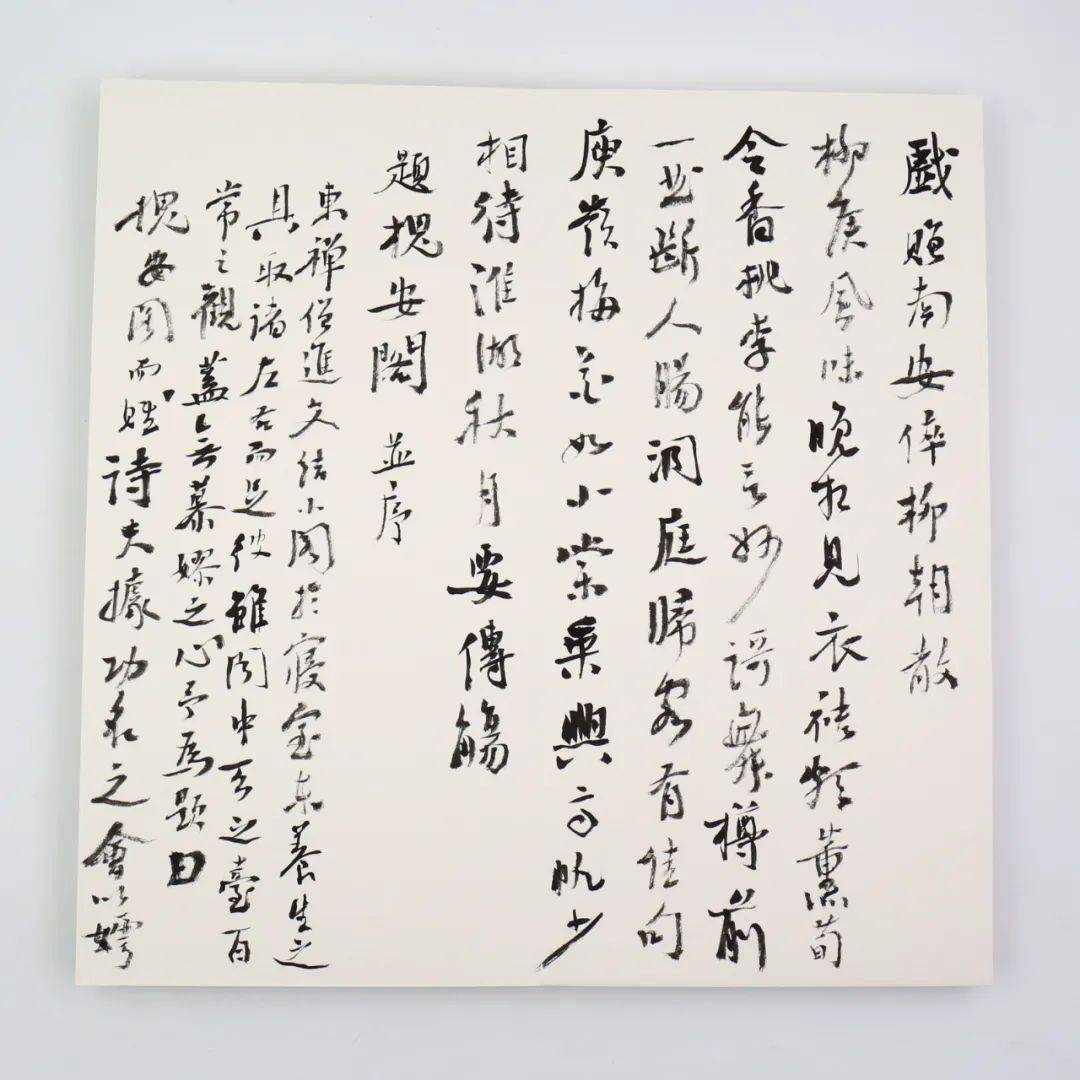 戲贈南安倅柳朝散
柳侯風味晚相見衣祛頗薰荀
令香桃李能言妙謌舞樽前
一曲斷人腸洞庭歸客有佳句
庾嶺梅花如小棠乘興高帆少
相待淮湖秋月要傳觴
題槐安閣 並序
東禪僧進文結小閣於寢室東養生之
具取諸左右而足彼雖聞中天之臺百
常之觀蓋無慕嫪之心予為題曰
槐安閣而賦詩夫據功名之會以嫮